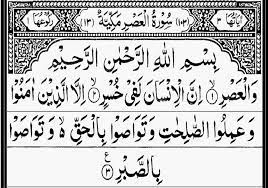 اٰيَاتُهَا ٣ (١٠٣) سُوْرَةُ الْعَصْرِ مَكِّيَّةٌ (١٣) رُكُوْعُهَا
بِسْمِ اللّٰهِ الرَّحْمٰنِ الرَّحِيْمِ
وَالْعَصْرِ ۙ﴿١﴾ اِنَّ الْاِنْسَانَ لَفِيْ خُسْرٍ ۙ﴿٢﴾ اِلَّا الَّذِيْنَ اٰمَنُوْا
وَ عَمِلُوا الصّٰلِحٰتِ وَتَوَاصَوْا بِالْحَقِّ ۙ۬ وَ تَوَاصَوْا
بِالصَّبْرِ ﴿٣﴾ ع